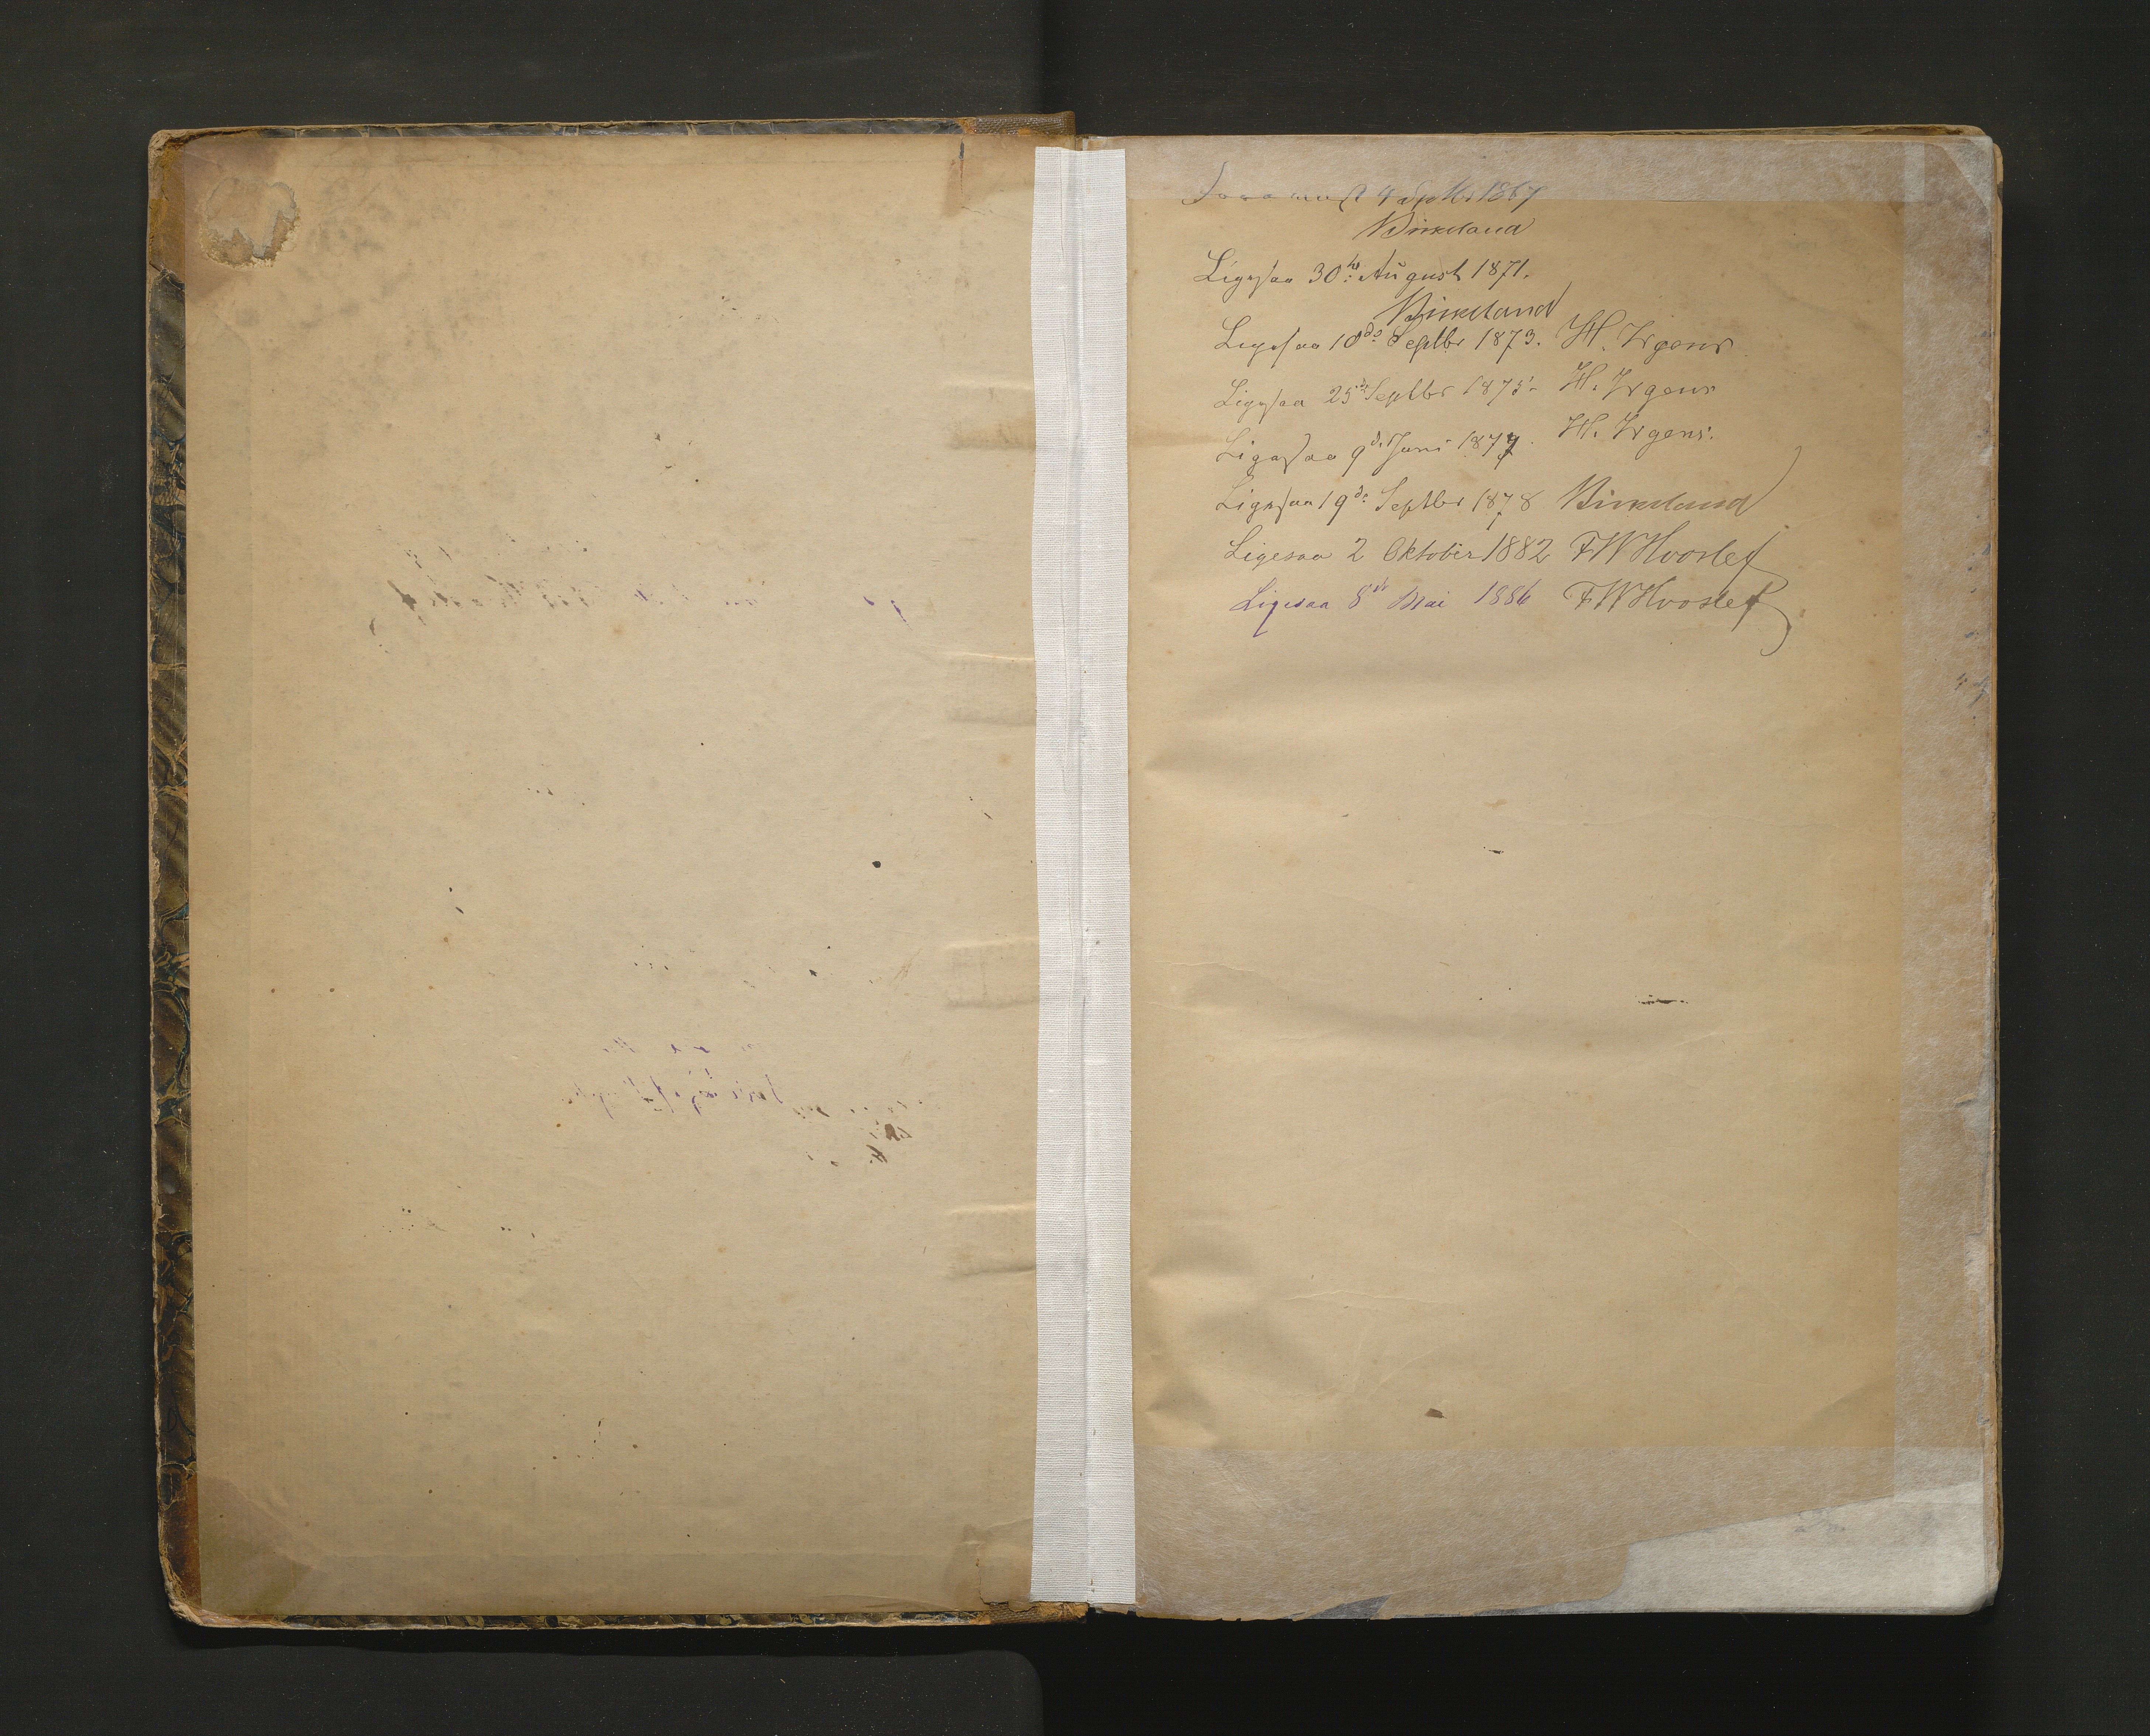 Forevuist 4 Septbr 1867
Birkeland
Ligesaa 30te August 1871.
Birkeland
Ligesaa 18de Septbr 1873. H. Irgens
Ligesaa 25de Septbr 1875. H. Irgens
Ligesaa 9de Juni 1877. H. Irgens.
Ligesaa 19de Septbr 1878 Birkeland
Ligesaa 2 Oktober 1882 FW Hvoslef
Ligesaa 8de Mai 1886 FW Hvoslef